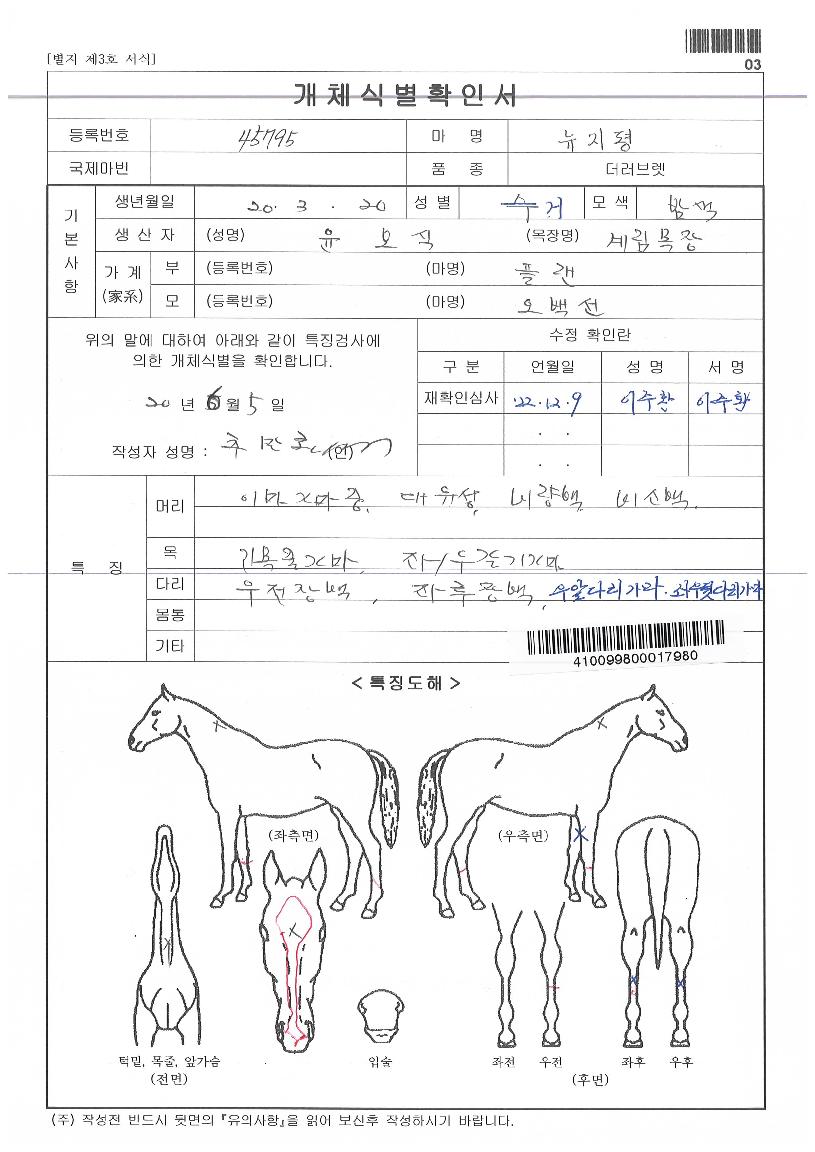 [별지 제3호 서식]
03
개체식별확인서
등록번호 45795 마 명 뉴지평
국제마빈 품 종 더러브렛
기본사항
생년월일 20. 3. 20 성별 수 거 모색 밤색
생산자 (성명) 윤 오 식 (목장명) 세림목장
가계(家系) 부 (등록번호) (마명) 플랜
모 (등록번호) (마명) 오백선
위의 말에 대하여 아래와 같이 특징검사에
의한 개체식별을 확인합니다.
20 년 6 월 5 일
작성자 성명 : (인)
수정 확인란
구 분 언월일 성 명 서 명
재확인심사 '22.12.9 이주환 이주환
. .
. .
특 징
머리 이마 가마 중, 대유성, 비량백, 비신백.
목
다리 우전장백, 좌후종백, 우앞다리가마.
몸통
기타
410099800017980
< 특징도해 >
(좌측면)
(우측면)
턱밑, 목줄, 앞가슴
(전면)
입술
좌전 우전
좌후 우후
(후면)
(주) 작성전 반드시 뒷면의 『유의사항』을 읽어 보신후 작성하시기 바랍니다.